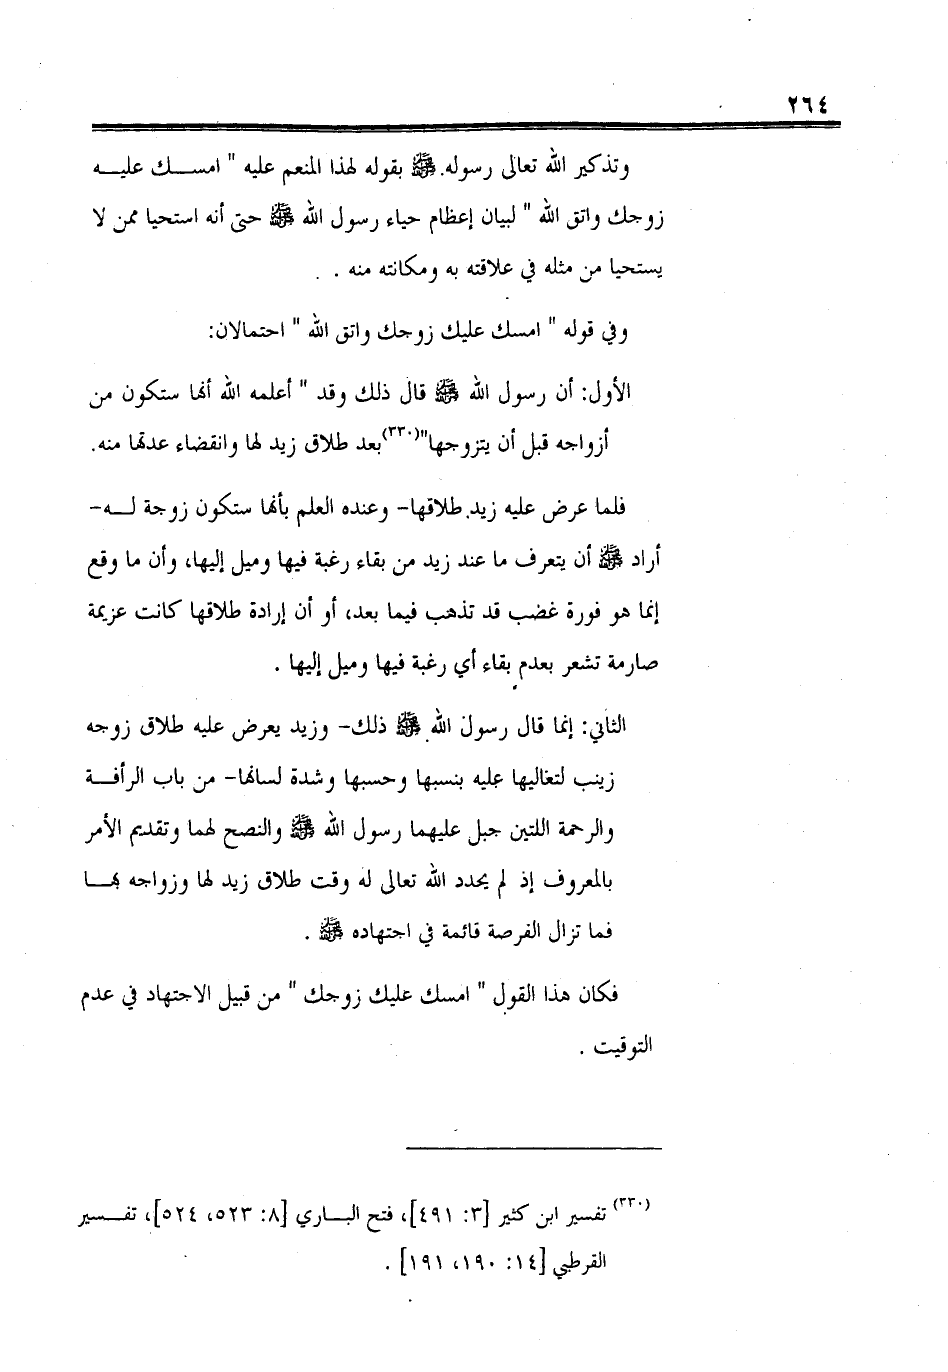 ٢٦٤
وتذكير الله تعالى رسوله ﷺ بقوله لهذا المنعم عليه " امســك عليــه
زوجك واتق الله " لبيان إعظام حياء رسول الله ﷺ حتى أنه استحيا ممن لا
يستحيا من مثله في علاقته به ومكانته منه .
وفي قوله " امسك عليك زوجك واتق الله " احتمالان:
الأول: أن رسول الله ﷺ قال ذلك وقد " أعلمه الله أنها ستكون من
أزواجه قبل أن يتزوجها"(٣٣٠)بعد طلاق زيد لها وانقضاء عدتها منه.
فلما عرض عليه زيد طلاقها- وعنده العلم بأنها ستكون زوجة لــه-
أراد ﷺ أن يتعرف ما عند زيد من بقاء رغبة فيها وميل إليها، وأن ما وقع
إنما هو فورة غضب قد تذهب فيما بعد، أو أن إرادة طلاقها كانت عزيمة
صارمة تشعر بعدم بقاء أي رغبة فيها وميل إليها .
الثاني: إنما قال رسول الله ﷺ ذلك- وزيد يعرض عليه طلاق زوجه
زينب لتغاليها عليه بنسبها وحسبها وشدة لسانها- من باب الرأفــة
والرحمة اللتين جبل عليهما رسول الله ﷺ والنصح لهما وتقديم الأمر
بالمعروف إذ لم يحدد الله تعالى له وقت طلاق زيد لها وزواجه بهــا
فما تزال الفرصة قائمة في اجتهاده ﷺ .
فكان هذا القول " امسك عليك زوجك " من قبيل الاجتهاد في عدم
التوقيت .
(٣٣٠) تفسير ابن كثير [٣: ٤٩١]، فتح البــاري [٨: ٥٢٣، ٥٢٤]، تفــسير
القرطبي [١٤: ١٩٠، ١٩١] .